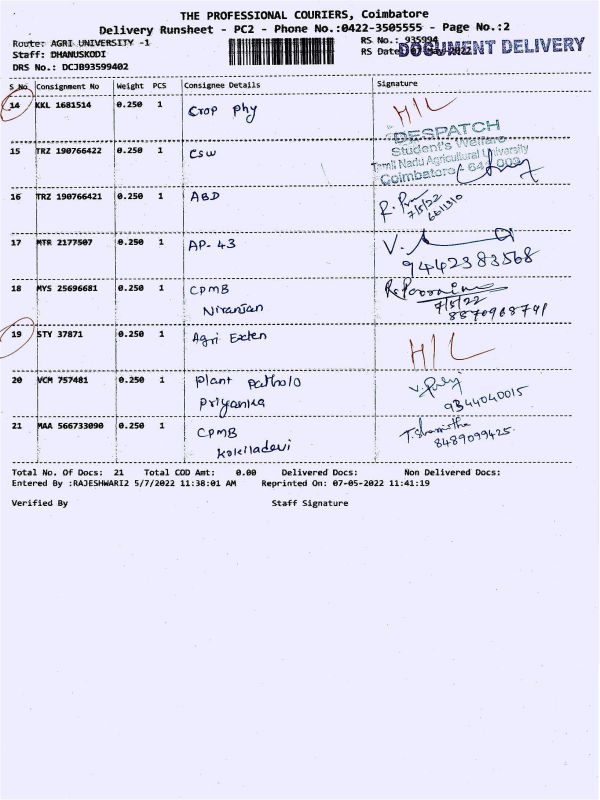 THE PROFESSIONAL COURIERS, Coimbatore
Delivery Runsheet - PC2 - Phone No.:0422-3505555 - Page No.:2
Route: AGRI UNIVERSITY -1
RS No.: 935994
Staff: DHANUSKODI
RS Date: 07-May-2022
DOCUMENT DELIVERY
DRS No.: DCJB93599402
S No. Consignment No Weight PCS Consignee Details Signature
14 KKL 1681514 0.250 1 Crop Phy H/L
DESPATCH
Student's Welfare
Tamil Nadu Agricultural University
Coimbatore - 641 003
15 TRZ 190766422 0.250 1 CSW
16 TRZ 190766421 0.250 1 ABD
7/5/22
661310
17 MTR 2177507 0.250 1 AP-43 V.
9442383568
18 MYS 25696681 0.250 1 CPMB
Niranjan
7/5/22
8870968741
19 STY 37871 0.250 1 Agri Exten H/L
20 VCM 757481 0.250 1 Plant Patholo
Priyanka
9344040015
21 MAA 566733090 0.250 1 CPMB T. Shamistha
Kokiladevi 8489099425
Total No. Of Docs: 21 Total COD Amt: 0.00 Delivered Docs: Non Delivered Docs:
Entered By :RAJESHWARI2 5/7/2022 11:38:01 AM Reprinted On: 07-05-2022 11:41:19
Verified By Staff Signature